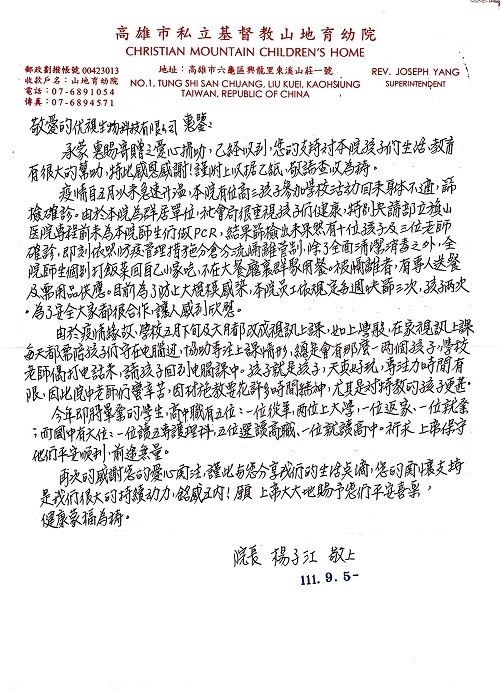 高雄市私立基督教山地育幼院
CHRISTIAN MOUNTAIN CHILDREN'S HOME
郵政劃撥帳號 00423013
收款戶名:山地育幼院
電話:07-6891054
傳真:07-6894571
地址:高雄市六龜區興龍里東溪山莊一號
NO.1, TUNG SHI SAN CHUANG, LIU KUEI, KAOHSIUNG
TAIWAN, REPUBLIC OF CHINA
REV. JOSEPH YANG
SUPERINTENDENT
敬愛的優視生物科技有限公司 惠鑒:
承蒙 惠賜寄贈之愛心捐助,已經收到,您的支持對本院孩子們生活、教育
有很大的幫助,特此感恩感謝!謹附上以捐乙紙,敬請查收為禱。
疫情自五月以來急速升溫,本院有位高三孩子參加學校活動回來身体不適,篩
檢確診。由於本院為群居單位,社會局很重視孩子們健康,特別央請部立旗山
醫院專程前來為本院師生們做PCR,結果篩檢出來果然有十位孩子及三位老師
確診,即刻依照防疫管理措施分倉分流隔離管制,除了全面清潔消毒之外,全
院師生個別打飯菜回自己小家吃,不在大餐廳裏群聚用餐。被隔離者,有專人送餐
及需用品供應。目前為了防止大規模感染,本院員工依規定每週快篩三次,孩子兩次
。為了安全大家都很合作,讓人感到欣慰。
由於疫情緣故,學校五月下旬及六月都改成視訊上課,如上學般,在家視訊上課
每天都需陪孩子們守在電腦邊,協助專注上課情形,總是會有那麼一兩個孩子,學校
老師偶打電話來,請孩子回到電腦課中。孩子就是孩子,天真好玩,專注力時間有
限,因此院中老師們蠻辛苦,因材施教要花許多時間精神,尤其是对特教的孩子更甚。
今年即時畢業的學生,高中職有五位:一位從軍、兩位上大學,一位返家、一位就業
;而國中有六位:一位讀五專護理科,五位選讀高職、一位就讀高中。祈求 上帝保守
他們平安順利,前途無量。
再次的感謝您的愛心関注,謹此与您分享我們的生活点滴,您的関懷支持
是我們很大的持續動力,銘感五內!願 上帝大大地賜予您們平安喜樂,
健康蒙福為禱。
院長 楊子江 敬上
111. 9. 5-